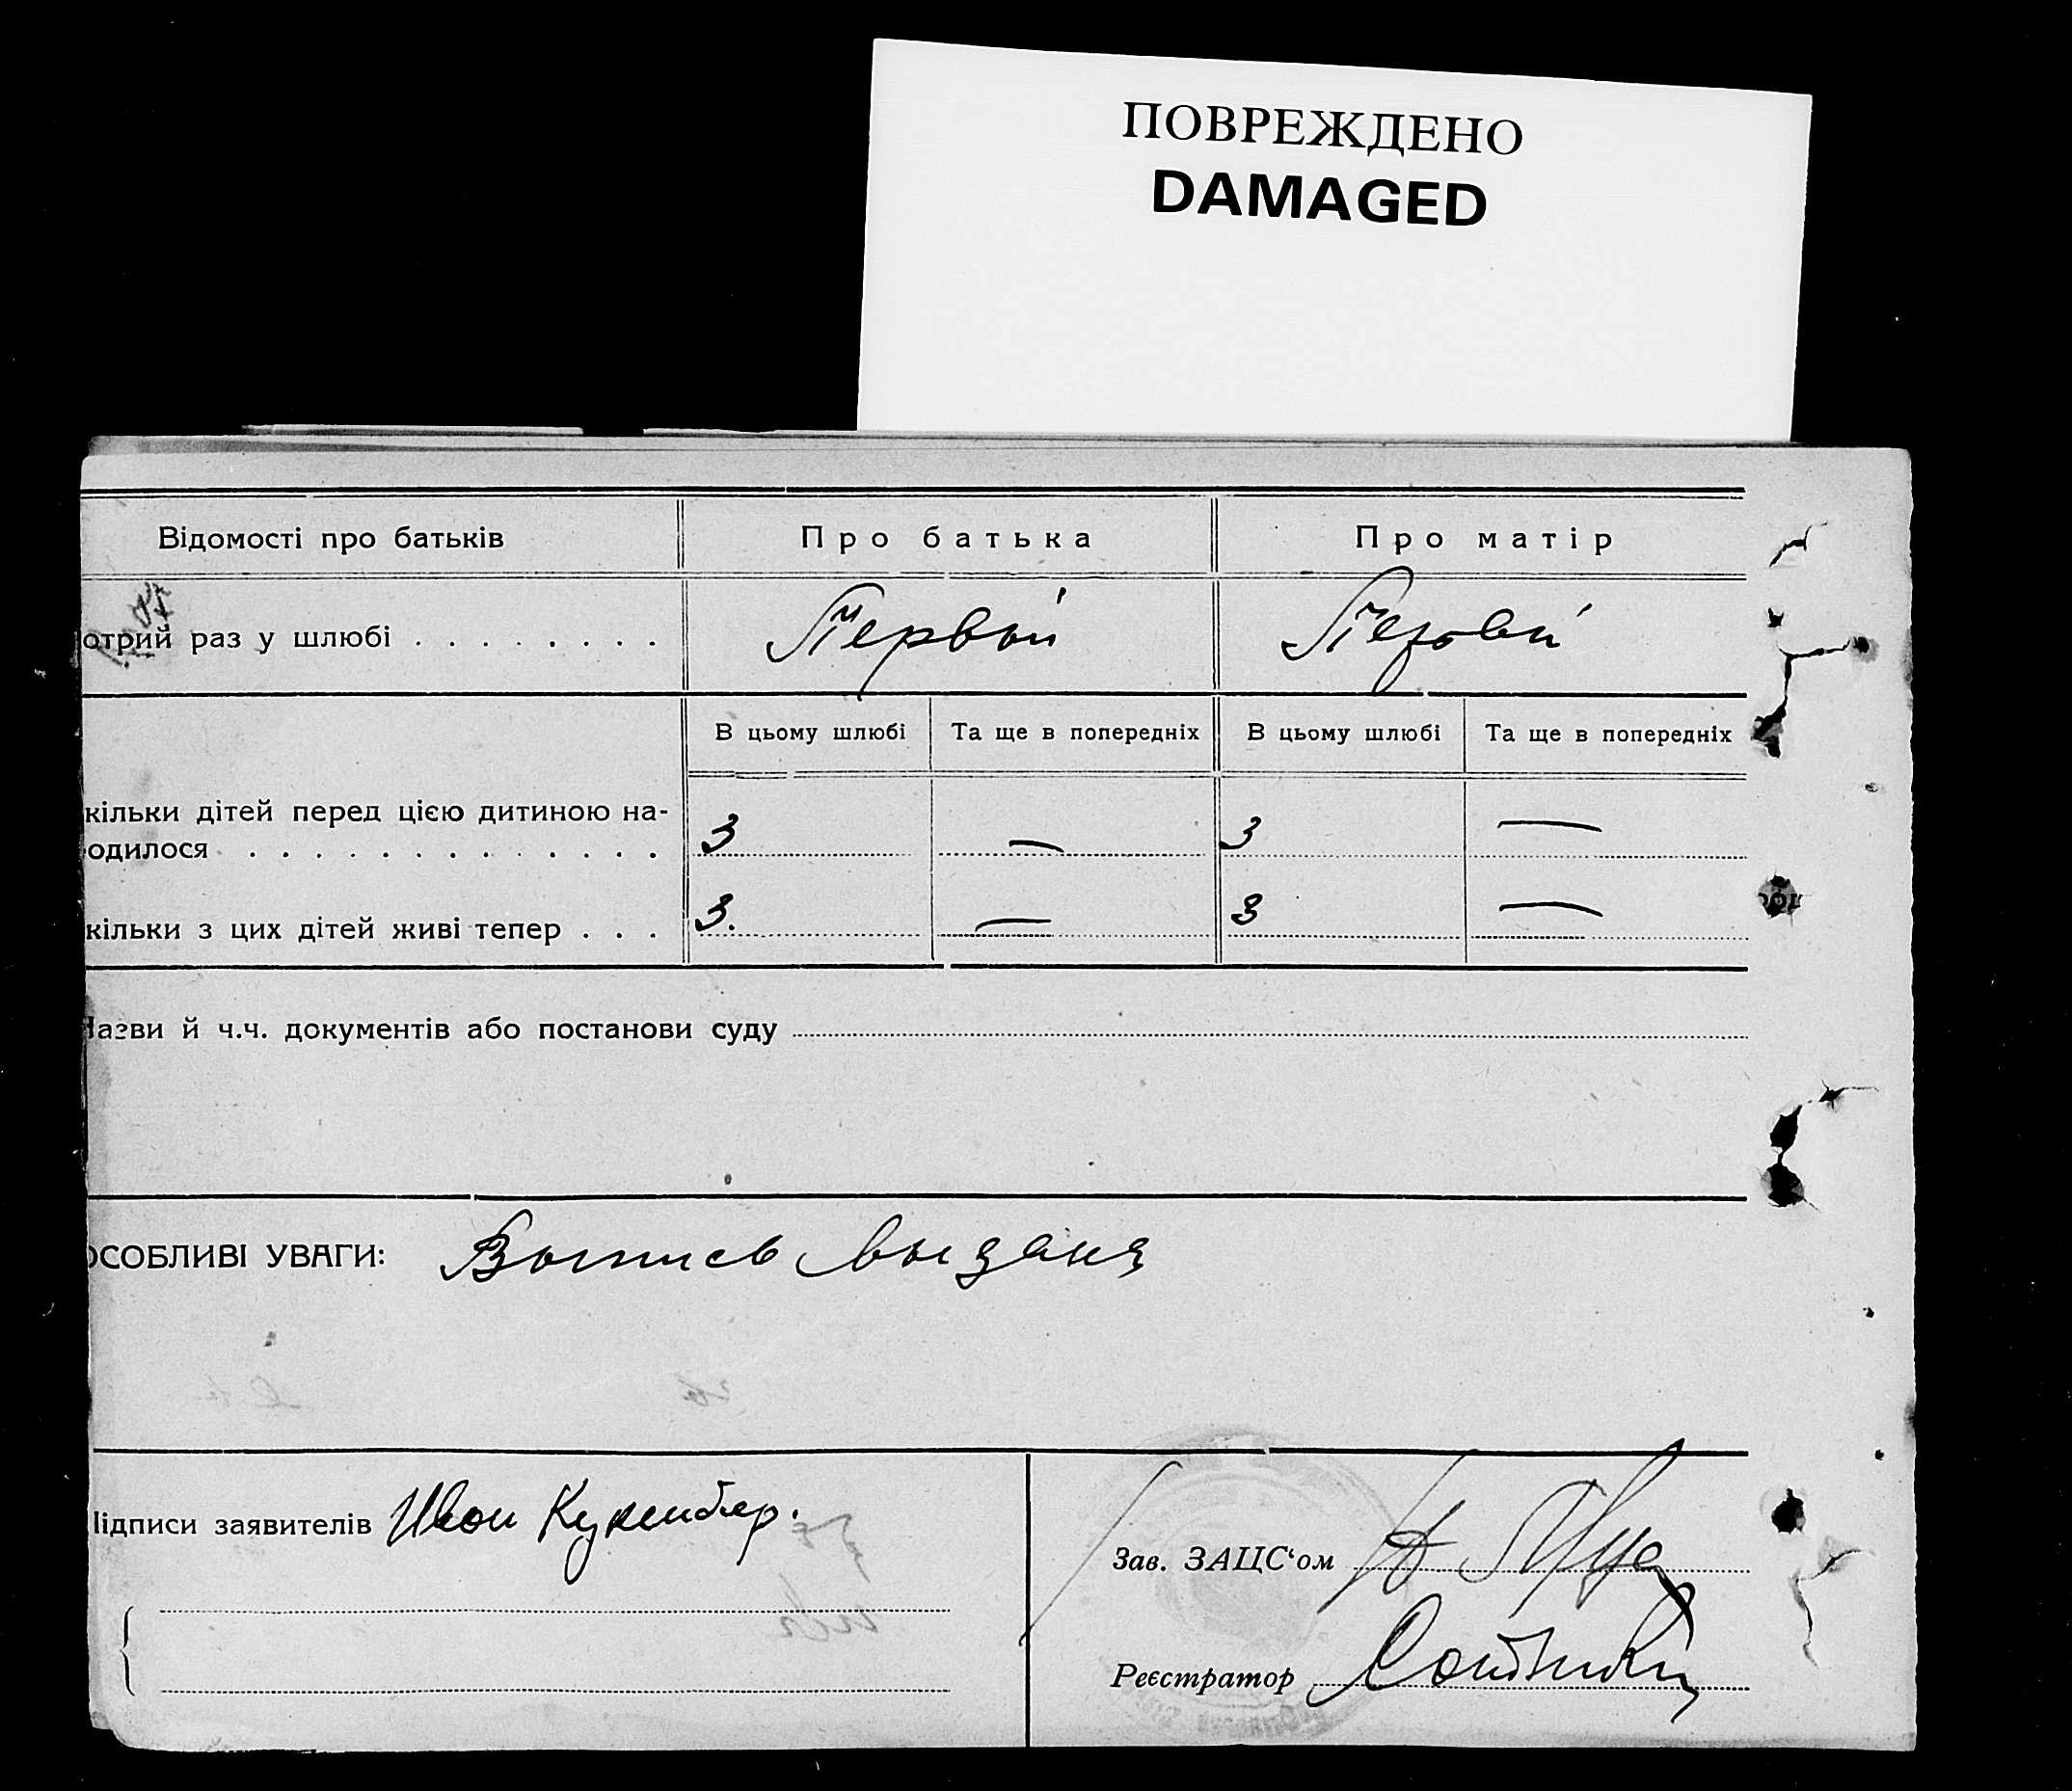 ПОВРЕЖДЕНО
DAMAGED
Відомості про батьків
Про батька
Про матір
отрий раз у шлюбі . . . . . . . .
Первый
Первый
В цьому шлюбі
Та ще в попередніх
В цьому шлюбі
Та ще в попередніх
кільки дітей перед цією дитиною на-
одилося . . . . . . . . . . . . . .
3
—
3
—
кільки з цих дітей живі тепер . . .
3.
—
3
—
Назви й ч.ч. документів або постанови суду
ОСОБЛИВІ УВАГИ: Выпись выдана
Підписи заявителів Иван
Зав. ЗАЦС‘ом
Реєстратор